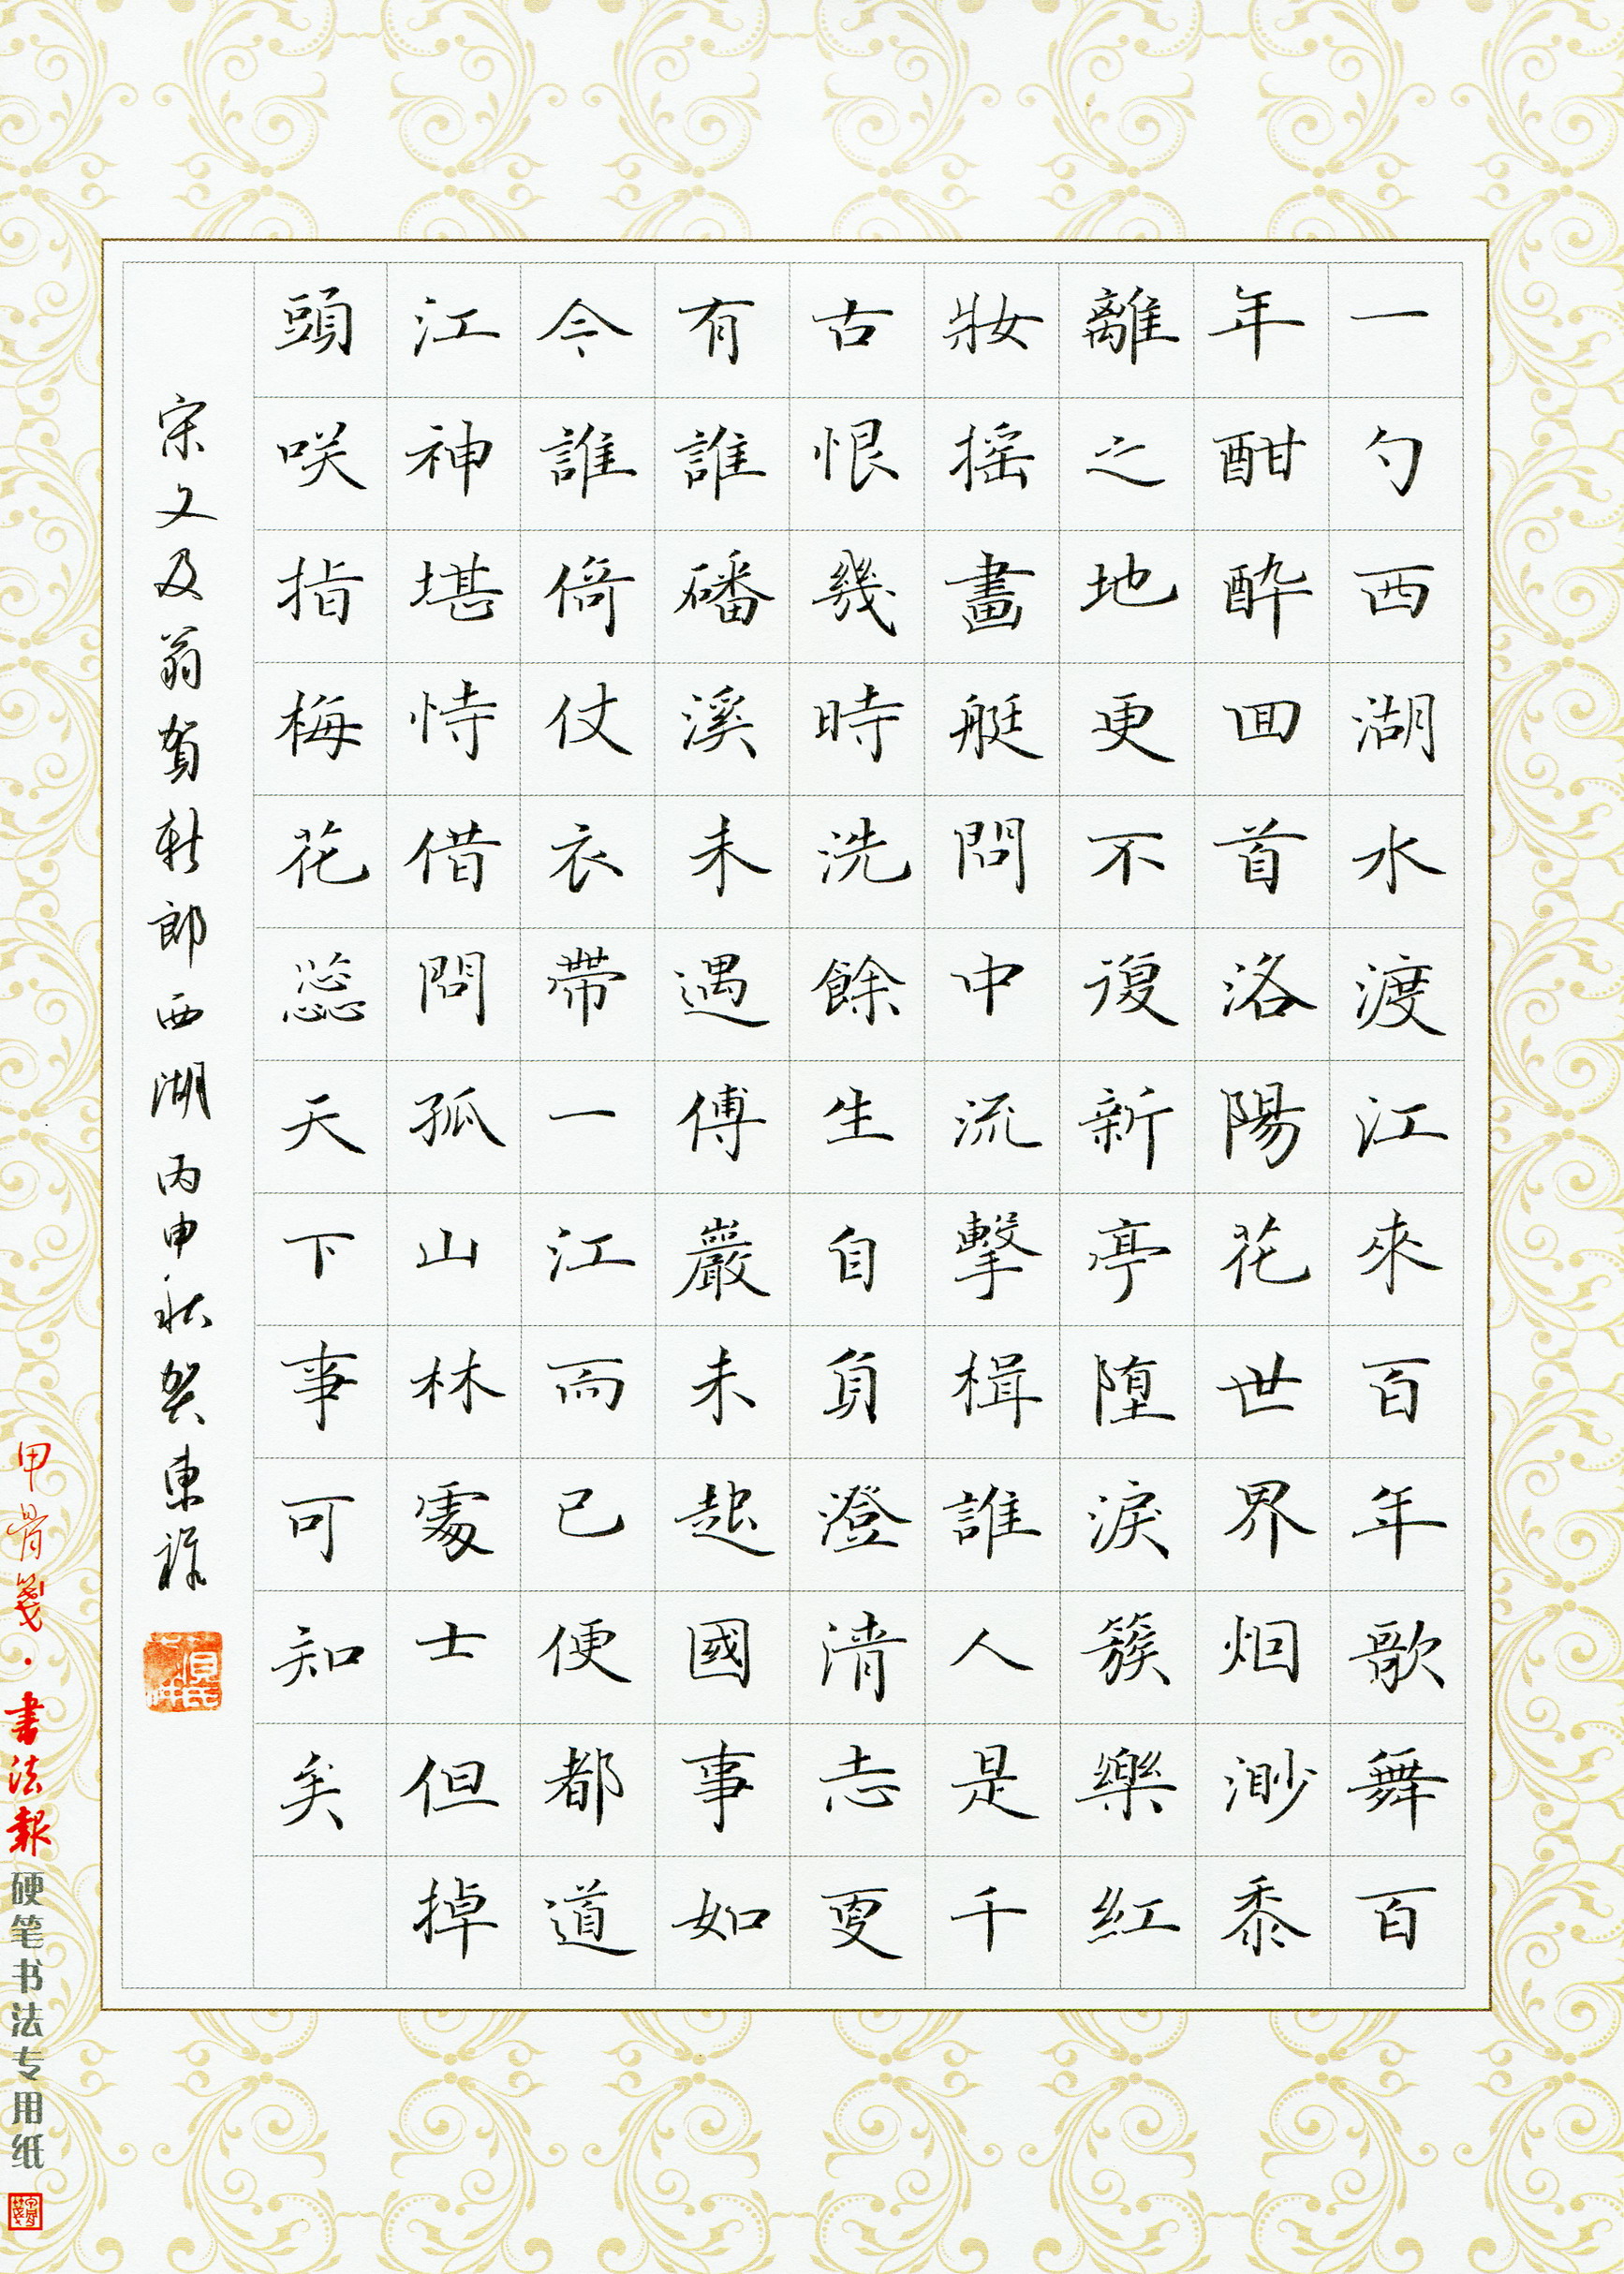 一勺西湖水渡江來百年歌舞百
年酣醉回首洛陽花世界烟渺黍
離之地更不復新亭墮淚簇樂紅
妝摇畫艇問中流擊楫誰人是千
古恨幾時洗餘生自負澄清志更
有誰磻溪未遇傅巖未起國事如
今誰倚仗衣帶一江而已便都道
江神堪恃借問孤山林處士但掉
頭咲指梅花蕊天下事可知矣
宋文及翁賀新郎西湖丙申秋賀東
甲骨箋·書法報硬笔书法专用纸